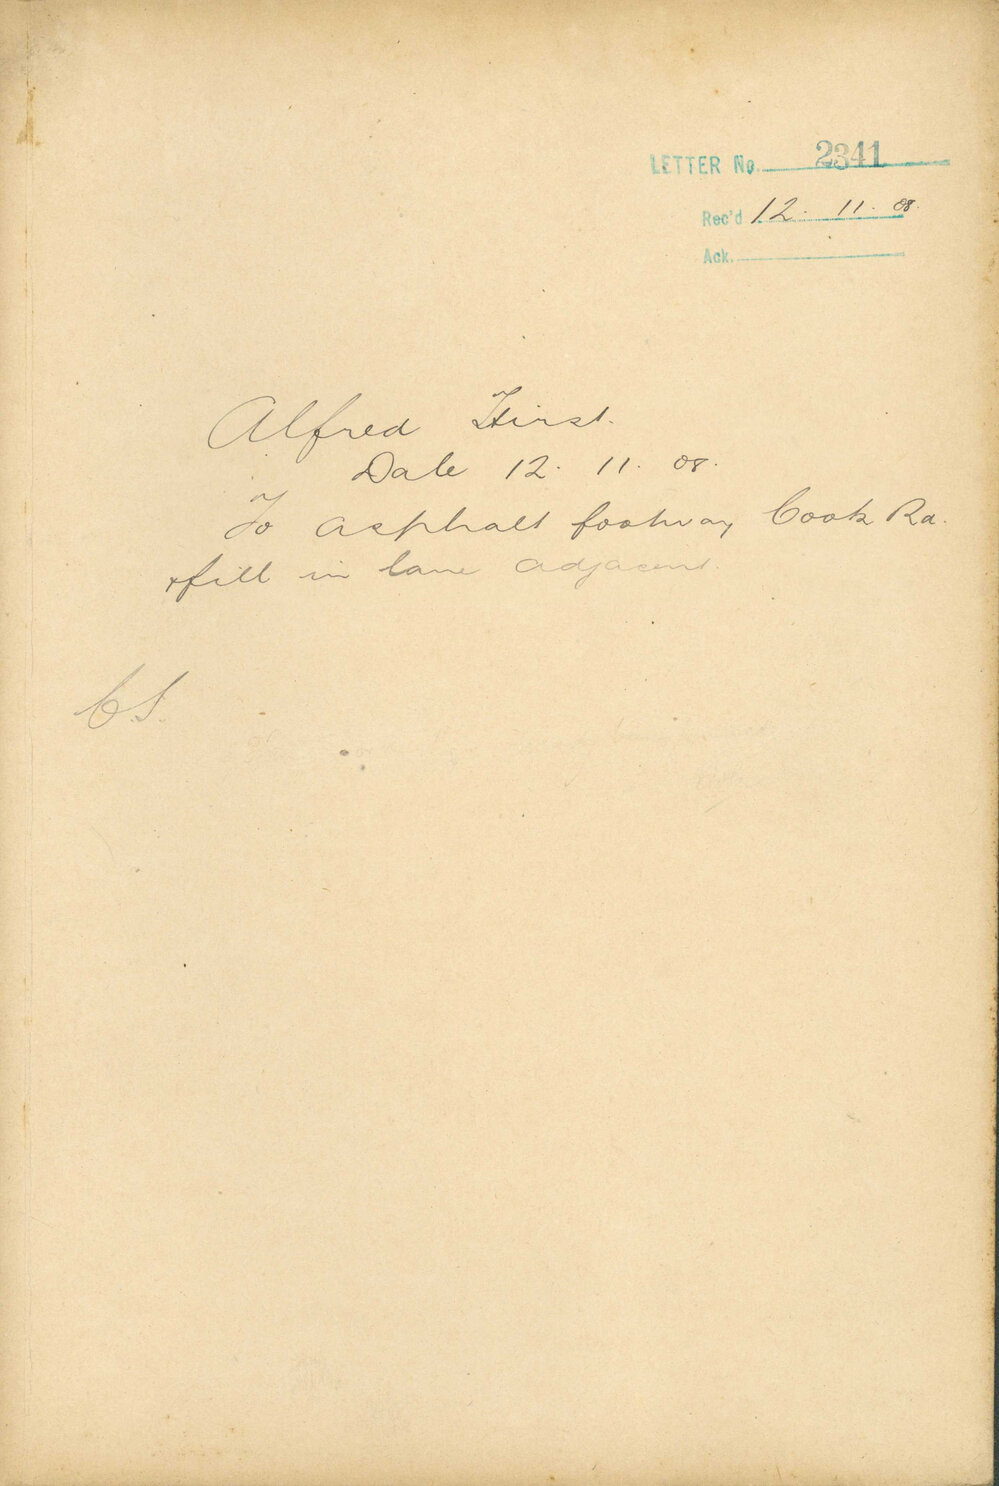 LETTER No. 2341
Rec'd 12. 11. 08.
Ack.
Alfred Hirst.
Date 12. 11. 08.
To asphalt footway Cook Rd.
& fill in lane adjacent.
C.S.